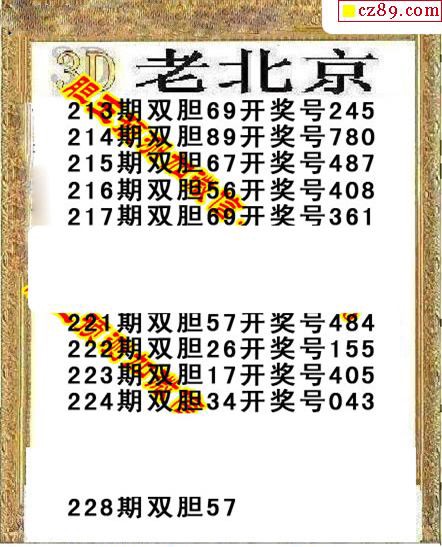 cz89.com
3D 老北京
213期双胆69开奖号245
214期双胆89开奖号780
215期双胆67开奖号487
216期双胆56开奖号408
217期双胆69开奖号361
221期双胆57开奖号484
222期双胆26开奖号155
223期双胆17开奖号405
224期双胆34开奖号043
228期双胆57